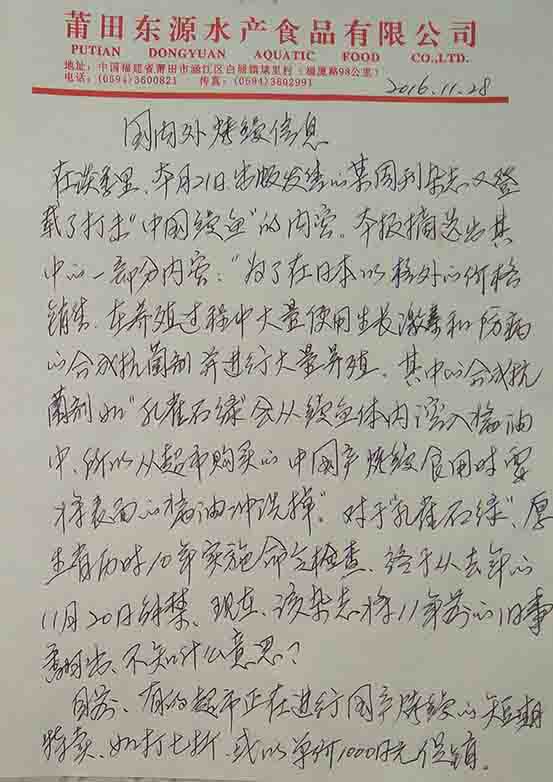 莆田东源水产食品有限公司
PUTIAN DONGYUAN AQUATIC FOOD CO.,LTD.
地址：中国福建省莆田市涵江区白塘镇埭里村（福厦路98公里）
电话：(0594)3600821 传真：(0594)3602991
2016.11.28
国内外烤鳗信息
在谈季里、本月21日出版发售的某周刊杂志又登
载了打击“中国鳗鱼”的内容。本报摘选出其
中的一部分内容：“为了在日本以格外的价格
销售、在养殖过程中大量使用生长激素和防病
的合成抗菌剂并进行大量养殖。其中的合成抗
菌剂如“孔雀石绿”会从鳗鱼体内溶入酱油
中、所以从超市购买的中国产烤鳗食用时要
将表面的酱油冲洗掉”。对于“孔雀石绿”、厚
生省历时10年实施命令检查、终于从去年的
11月20日解禁、现在、该杂志将11年前的旧事
重提出、不知什么意思？
目前、有的超市正在进行国产烤鳗的短期
特卖、如打七折、或以单价1000日元促销。